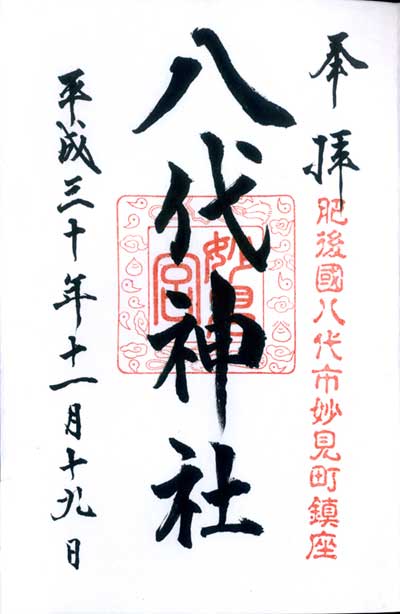 奉拝
肥後國八代市妙見町鎮座
八代神社
妙見宮
平成三十年十一月十九日